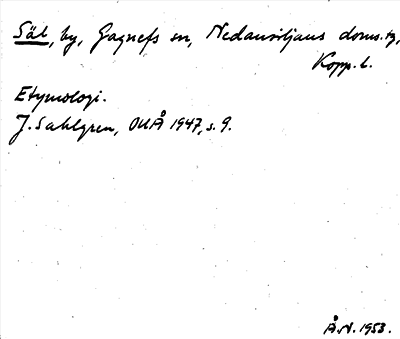 Säl, by, Gagnefs sn, Nedansiljans doms.tg,
Kopp. l.
Etymologi.
J. Sahlgren, OUÅ 1947, s. 9.
Å.N. 1953.